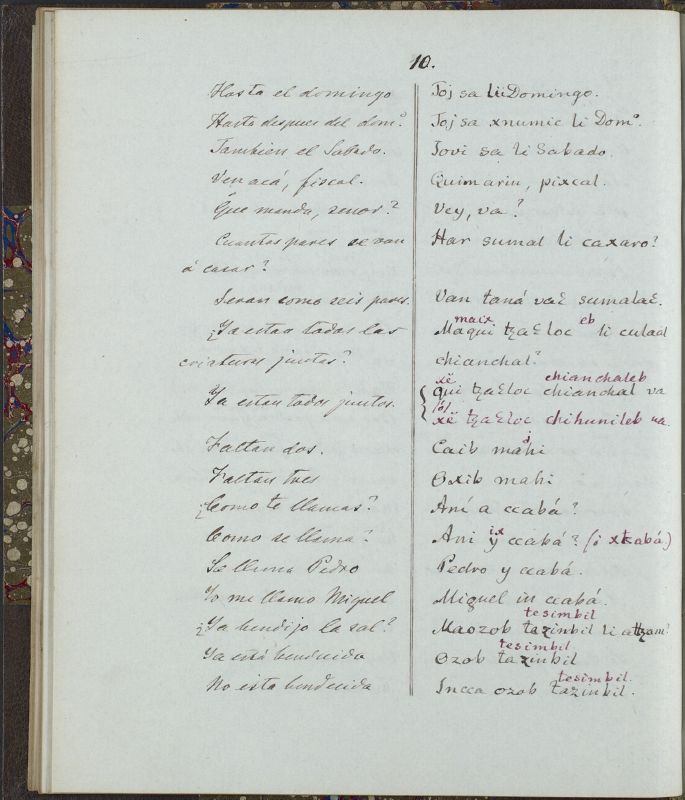 10.
Hasta el domingo Toj sa lii Domingo.
Hasta despues del dom.º Toj sa xnumic li Domº.
Tambien el Sabado. Jovi sa li Sabado.
Ven acá, fiscal. Quimarin, pixcal.
Que manda, señor? Vey, va?
Cuantos pares se van Har sumal li caxaro?
á casar?
Seran como seis pares. Van taná vaƐ sumalaƐ.
maix eb
¿Ya estan todas las Maqui tzaƐloc li culaal
criaturas juntas? chianchal?
xë chianchaleb
Ya estan todos juntos. qui tzaƐloc chianchal va
(ó)
xë tzaƐloc chihunileb va.
Faltan dos. Caib mahi
Faltan tres Oxib mahi
¿Como te llamas? Aní a ccabá?
ix
Como se llama? Ani y ccabá? (ó xkabá)
Se llama Pedro Pedro y ccabá.
Yo me llamo Miguel Miguel in ccabá.
tesimbil
¿Ya bendijo la sal? Maozob tazinbil li attzam?
tesimbil
Ya está bendecida Ozob tazinbil
tesimbil.
No esta bendecida Incca ozob tazinbil.